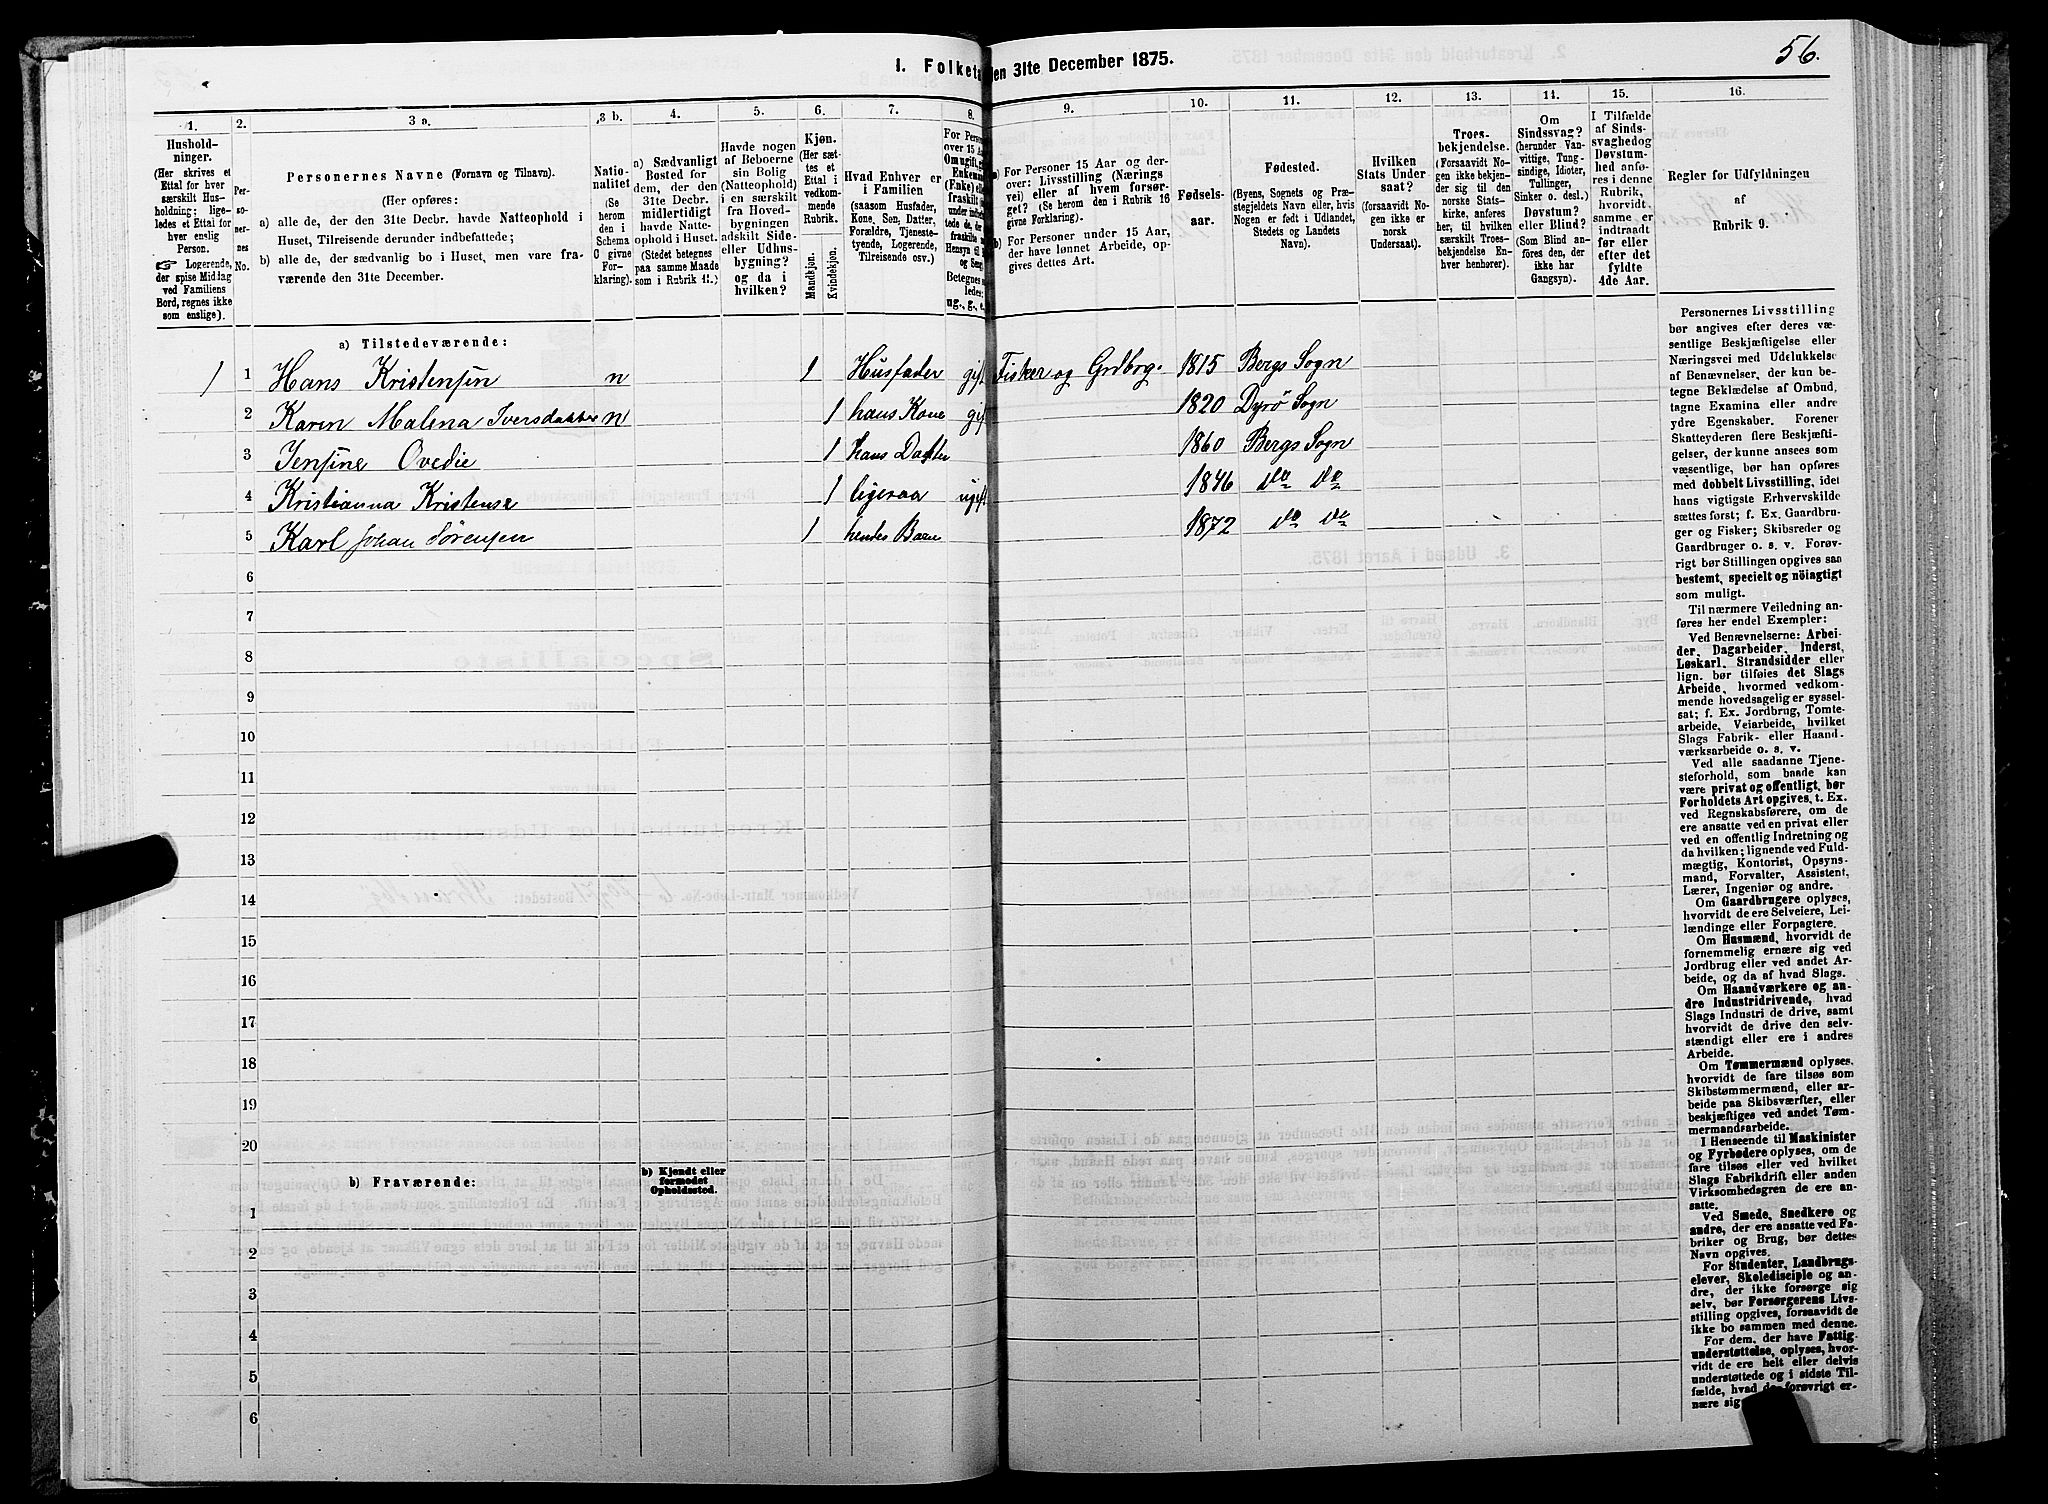 1. Folketæ
en 31te December 1875.
56.
1.
Husholdninger.
(Her skrives et
Ettal for hver
særskilt Husholdning;
ligeledes et Ettal for
hver enslig
Person.
☞ Logerende,
der spise Middag
ved Familiens
Bord, regnes ikke
som enslige).
2.
Personernes
No.
3 a.
Personernes Navne (Fornavn og Tilnavn).
(Her opføres:
a) alle de, der den 31te Decbr. havde Natteophold i
Huset, Tilreisende derunder indbefattede;
b) alle de, der sædvanlig bo i Huset, men vare fraværende den 31te December.
3 b.
Nationalitet
(Se
herom
den i
Schema
O givne
Forklaring).
4.
a) Sædvanligt
Bosted for
dem, der den
31te Decbr.
midlertidigt
havde Natteophold i Huset.
(Stedet betegnes
paa samme Maade
som i Rubrik 11.)
5.
Havde nogen
af Beboerne
sin Bolig
(Natteophold)
i en særskilt
fra Hovedbygningen
adskilt Side-
eller Udhusbygning?
og da i
hvilken?
6.
Kjøn.
(Her sættes et
Ettal i
vedkommende
Rubrik.
Mandkjøn.
Kvindekjøn.
7.
Hvad Enhver er
i Familien
(saasom Husfader,
Kone, Søn, Datter,
Forældre, Tjenestetyende, Logerende,
Tilreisende osv.)
8.
For Person
over 15 Aa
Om ugift, g
Enkem
(Enke) el
fraskilt
Betegnes
ledes:
ug., g., e,
9.
a) For Personer 15 Aar og derover: Livsstilling (Næringsvei) eller af hvem forsørget? (Se herom den i Rubrik 16
givne Forklaring).
b) For Personer under 15 Aar,
der have lønnet Arbeide, opgives dettes Art.
10.
Fødselsaar.
11.
Fødested.
(Byens, Sognets og Præstegjeldets Navn eller, hvis
Nogen er født i Udlandet,
Stedets og Landets
Navn).
12.
Hvilken
Stats Undersaat?
(forsaavidt Nogen ikke er
norsk
Undersaat).
13.
Troesbekjendelse.
(Forsaavidt Nogen ikke bekjender sig til den
norske Statskirke, anføres
her, til hvilken
særskilt Troesbekjendelse Enhver henhører).
14.
Om
Sindssvag?
(herunder Vanvittige, Tungsindige, Idioter,
Tullinger,
Sinker o. desl.)
Døvstum?
eller Blind?
(Som Blind anføres den, der
ikke har
Gangsyn).
15.
I Tilfælde
af Sindssvaghed og
Døvstumhed anføres i denne
Rubrik,
hvorvidt
samme er
indtraadt
før eller
efter det
fyldte
4de Aar.
16.
Regler for Udfyldningen
af
Rubrik 9.
a) Tilstedeværende:
1 1 Hans Kristensen n 1 Husfader gift Fisker og Grdbrg. 1815 Bergs Sogn
2 Karen Malena Iversdatter n 1 hans Kone gift 1820 Dyrø Sogn
3 Jensine Ovedie 1 hans Datter 1860 Bergs Sogn
4 Kristianna Kristense 1 ligesaa ugift 1846 do do
5 Karl Johan Sørensen 1 hendes Barn 1872 do do
6
7
8
9
10
11
12
13
14
15
16
17
18
19
20
b) Fraværende:
b) Kjendt eller
formodet
Opholdssted.
1
2
3
4
5
6
Personernes Livsstilling
bør angives efter deres væsentlige Beskjæftigelse eller
Næringsvei med Udelukkelse
af Benævnelser, der kun betegne Beklædelse af Ombud,
tagne Examina eller andre
ydre Egenskaber. Forener
Skatteyderen flere Beskjæftigelser, der kunne ansees som
væsentlige, bør han opføres
med dobbelt Livsstilling, idet
hans vigtigste Erhvervskilde
sættes først; f. Ex. Gaardbruger og Fisker; Skibsreder og
Gaardbruger o. s. v. Forøvrigt bør Stillingen opgives saa
bestemt, specielt og nöiagtigt
som muligt.
Til nærmere Veiledning anføres her endel Exempler:
Ved Benævnelserne: Arbeider, Dagarbeider, Inderst,
Løskarl, Strandsidder eller
lign. bør tilføies det Slags
Arbeide, hvormed vedkommende hovedsagelig er sysselsat; f. Ex. Jordbrug, Tomtearbeide, Veiarbeide, hvilket
Slags Fabrik- eller Haandværksarbeide o. s. v.
Ved alle saadanne Tjenesteforhold, som baade kan
være privat og offentligt, bør
Forholdets Art opgives, t. Ex.
ved Regnskabsførere, om de
ere ansatte ved en privat eller
ved en offentlig Indretning og
da hvilken; lignende ved Fuldmægtig, Kontorist, Opsynsmand, Forvalter, Assistent,
Lærer, Ingeniør og andre.
Om Gaardbrugere oplyses,
hvorvidt de ere Selveiere, Leilændinge eller Forpagtere.
Om Husmænd, hvorvidt de
fornemmelig ernære sig ved
Jordbrug eller ved andet Arbeide, og da af hvad Slags.
Om Haandværkere og andre Industridrivende, hvad
Slags Industri de drive, samt
hvorvidt de drive den selvstændigt eller ere i andres
Arbeide.
Om Tømmermænd oplyses,
hvorvidt de fare tilsøs som
Skibstømmermænd, eller arbeide paa Skibsværfter, eller
beskjæftiges ved andet Tømmermandsarbeide.
I Henseende til Maskinister
og Fyrbødere oplyses, om de
fare tilsøs eller ved hvilket
Slags Fabrikdrift eller anden
Virksomhedsgren de ere ansatte.
Ved Smede, Snedkere og
andre, der ere ansatte ved Fabriker og Brug, bør dettes
Navn opgives.
For Studenter, Landbrugselever, Skoledisciple og andre, der ikke forsørge sig
selv, bør Forsørgerens Livsstilling opgives, forsaavidt de
ikke bo sammen med denne.
For dem, der have Fattigunderstøttelse, oplyses, hvorvidt de ere helt eller delvis
understøttede og i sidste Tilfælde, hvad de forøvrigt ernære sig